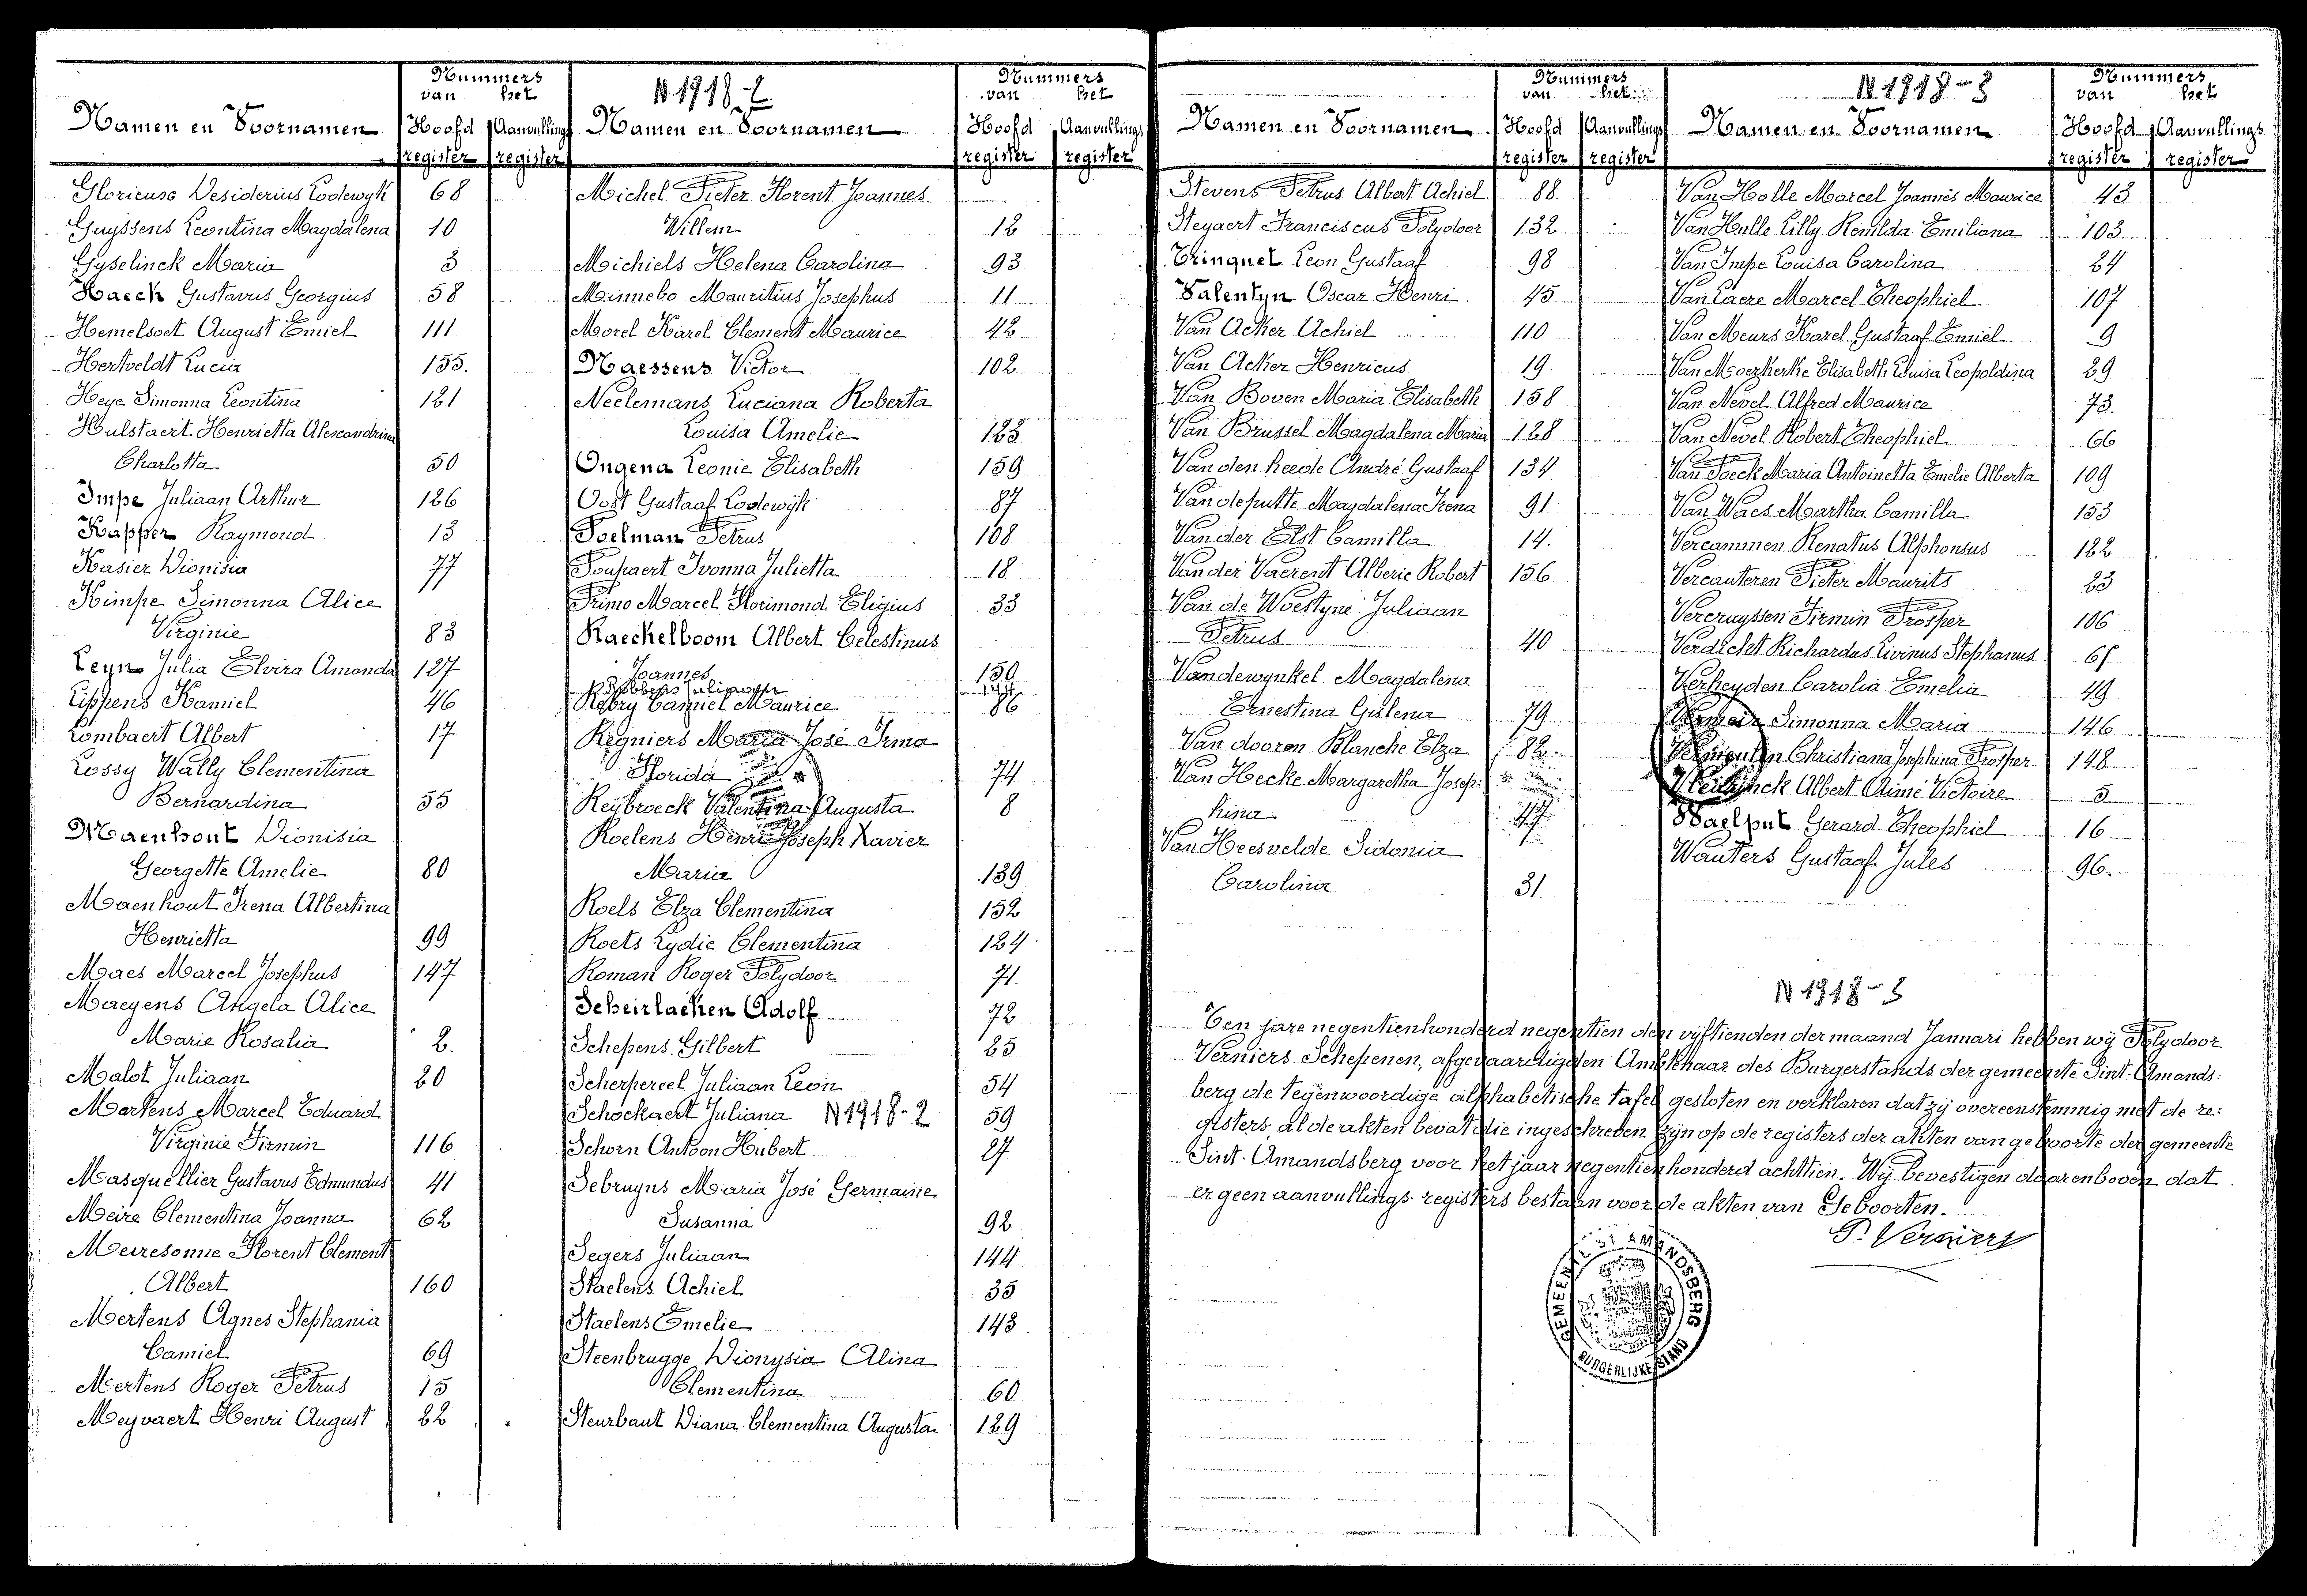 Nummers
van het
Namen en Voornamen Hoofd register Aanvullings register
Gloricuse Desiderius Lodewyk 68
Guyssens Leontina Magdalena 10
Gyselinck Maria 3
Haeck Gustavus Georgius 58
Hemelsoet August Emiel 111
Hertveldt Lucia 155.
Heye Simonna Leontina 121
Hulstaert Henrietta Alescandrina
Charlotta 50
Impe Juliaan Arthur 126
Kapper Raymond 13
Kasier Dionisia 77
Kimpe Simonna Alice
Virginie 83
Leyn Julia Elvira Amanda 127
Lippens Kamiel 46
Lombaert Albert 17
Lossy Wally Clementina
Bernardina 55
Maenhout Dionisia
Georgette Amelie 80
Maenhout Irena Albertina
Henrietta 99
Maes Marcel Josephus 147
Maeyens Angela Alice
Marie Rosalia 2.
Malot Juliaan 20
Martens Marcel Eduard
Virginie Firmin 116
Masquellier Gustavus Edmundus 41
Meire Clementina Joanna 62
Meiresonne Florent Clement
Albert 160
Mertens Agnes Stephania
Camiel 69
Mertens Roger Petrus 15
Meyvaert Henri August 22
N 1918-2
Nummers
van het
Namen en Voornamen Hoofd register Aanvullings register
Michel Pieter Florent Joannes
Willem 12
Michiels Helena Carolina 93
Minnebo Mauritius Josephus 11
Morel Karel Clement Maurice 42
Naessens Victor 102
Neelemans Luciana Roberta
Louisa Amelie 123
Ongena Leonie Elisabeth 159
Oost Gustaaf Lodewijk 87
Poelman Petrus 108
Poupaert Ivonna Julietta 18
Primo Marcel Florimond Eligius 33
Raeckelboom Albert Celestinus
Joannes 150
Robbens Juliaan 144
Rebry Camiel Maurice 86
Regniers Maria José Irma
Florida 74
Reybroeck Valentina Augusta 8
Roelens Henri Joseph Xavier
Maria 139
Roels Elza Clementina 152
Roets Lydie Clementina 124
Roman Roger Polydoor 71
Scheirlacken Adolf 72
Schepens Gilbert 25
Scherpereel Juliaan Leon 54
Schockaert Juliana N 1918-2 59
Schorn Antoon Hubert 27
Sebruyns Maria José Germaine
Susanna 92
Segers Juliaan 144
Staelens Achiel 35
Staelens Emelie 143
Steenbrugge Dionysia Alina
Clementina 60
Steurbaut Diana Clementina Augusta 129
Nummers
van het
Namen en Voornamen Hoofd register Aanvullings register
Stevens Petrus Albert Achiel 88
Steyaert Franciscus Polydoor 132
Trinquet Leon Gustaaf 98
Valentyn Oscar Henri 45
Van Acker Achiel 110
Van Acker Henricus 19
Van Boven Maria Elisabeth 158
Van Brussel Magdalena Maria 128
Van den heede André Gustaaf 134
Van de putte Magdalena Irena 91
Van der Elst Camilla 14.
Van der Vaerent Alberic Robert 156
Van de Woestyne Juliaan
Petrus 40
Vandewynkel Magdalena
Ernestina Gislena 79
Van dooren Blanche Elza 82
Van Hecke Margaretha Josep:
hina 47
Van Heesvelde Sidonia
Carolina 31
N 1918-3
Nummers
van het
Namen en Voornamen Hoofd register Aanvullings register
Van Holle Marcel Joannès Maurice 43
Van Hulle Lilly Romilda Emiliana 103
Van Impe Louisa Carolina 24
Van Laere Marcel Theophiel 107
Van Meurs Karel Gustaaf Emiel 9
Van Moerkerke Elisabeth Louisa Leopoldina 29
Van Nevel Alfred Maurice 73.
Van Nevel Robert Theophiel 66
Van Poeck Maria Antoinetta Emelie Alberta 109
Van Waes Martha Camilla 153
Vercammen Renatus Alphonsus 122
Vercauteren Pieter Maurits 23
Vercruyssen Firmin Prosper 106
Verdickt Richardus Livinus Stephanus 61
Verheyden Carolia Emelia 49
Simonna Maria 146
Vermeulen Christiana Josephina Prosper 148
Albert Aimé Victoire 5
Waelput Gerard Theophiel 16
Wauters Gustaaf Jules 96.
N 1918-3
Ten jare negentienhonderd negentien den vijftienden der maand Januari hebben wij Polydoor
Verniers Schepenen, afgevaardigden Ambtenaar des Burgerstands der gemeente Sint-Amands:
berg de tegenwoordige alphabetische tafel gesloten en verklaren dat zij overeenstemmig met de re:
gisters, al de akten bevat die ingeschreven zijn op de registers der akten van geboorte der gemeente
Sint-Amandsberg voor het jaar negentien honderd achttien. Wij bevestigen daarenboven dat
er geen aanvullings registers bestaan voor de akten van Geboorten.
P. Verniers
GEMEENTE ST AMANDSBERG
BURGERLIJKE STAND